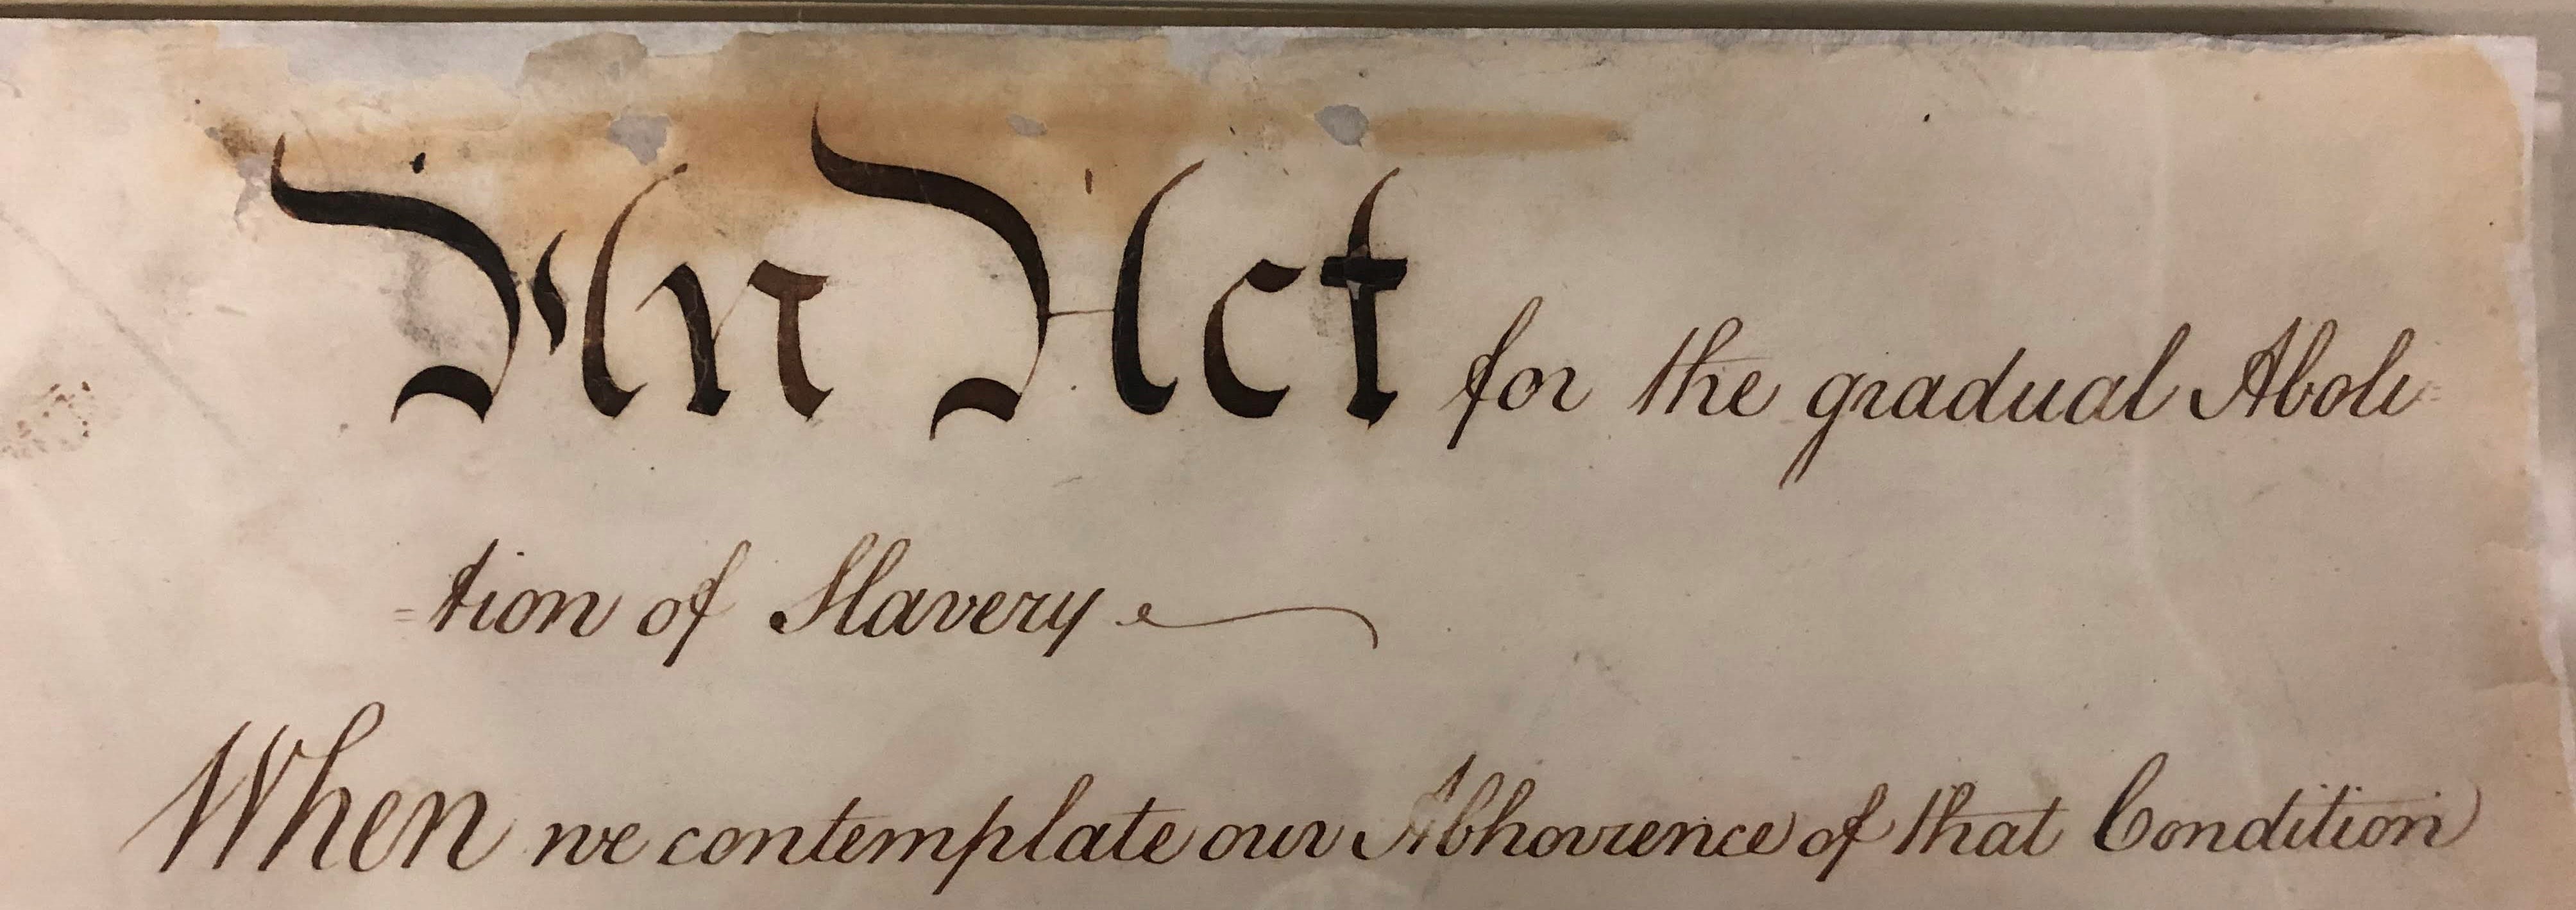 An Act for the gradual Aboli=
=tion of Slavery
When we contemplate our Abhorrence of that Condition